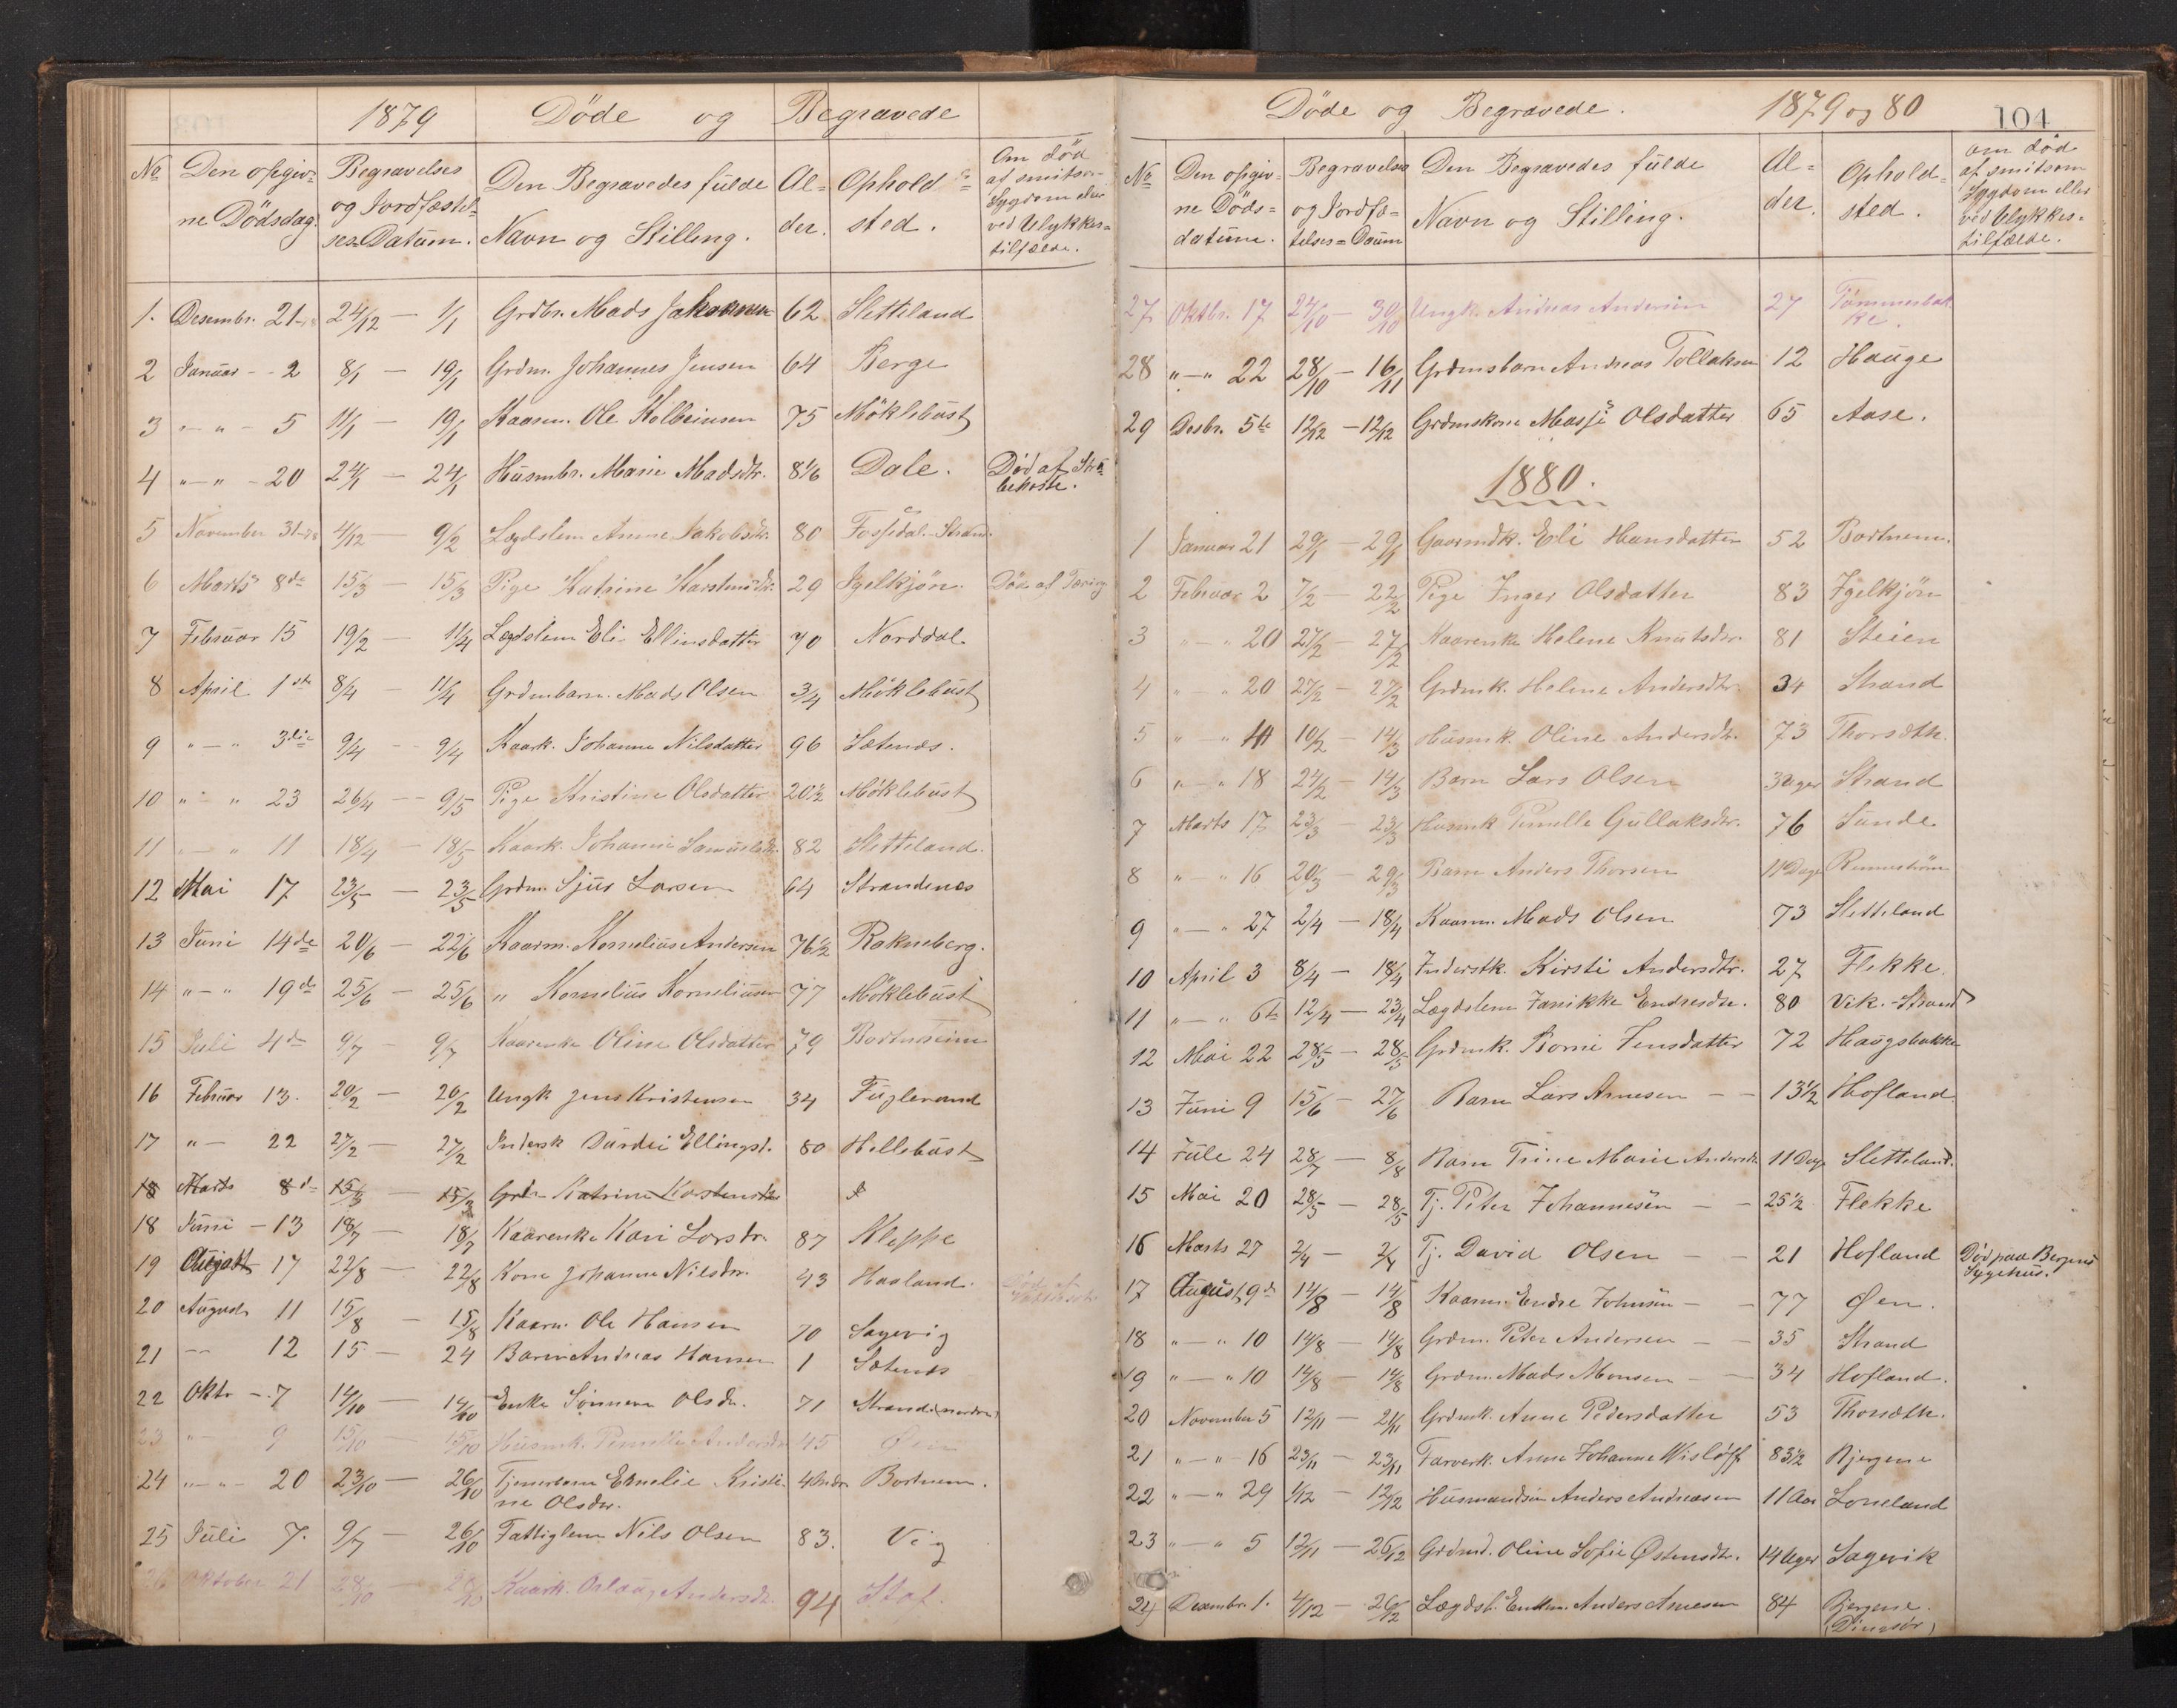 1879 Döde og Begravede
No Den opgiv= ne Dödsdag. Begravelses og Jordfæstel= ses Datum. Den Begravedes fulde Navn og Stilling. Al= der. Ophold= sted. Om död af smitsom Sygdom eller ved Ulykkes= tilfælde.
1. Desembr. 21 24/12 — 1/1 Grdbr. Mads 62 Sletteland
2 Januar - 2 8/1 — 19/1 Grdm. Johannes Jensen 64 Berge
3 " - " - 5 11/1 — 19/1 Kaarm. Ole Kolbeinsen 75 Möklebust
4 " - " - 20 24/1 — 24/1 Husmbr. Marie Madsdtr. 8 1/6 Dale. Död af
5 November 31 4/12 — 9/2 Lægdslem Anne Jakobsdtr. 80 Fossedal-Strand.
6 Marts 8de 15/3 — 15/3 Pige Katrine Karstensdtr. 29 Igelkjön. Död af Tæring
7 Februar 15 19/2 — 14/4 Lægdslem Eli Ellinsdatter 70 Norddal
8 April 1ste 8/4 — 11/4 Grdmbarn. Mads Olsen 3/4 Möklebust
9 " — " 3die 9/4 — 9/4 Kaark. Johanne Nilsdatter 96 Sætenes.
10 " — " 23 26/4 — 9/5 Pige Kristine Olsdatter 20 1/2 Möklebust
11 " — " 11 18/4 — 18/5 Kaark. Johanne Samuelsdtr. 82 Sletteland.
12 Mai 17 23/5 — 23/5 Grdm. Sjur Larsen 64 Strandenæs
13 Juni 14de 20/6 — 22/6 Kaarm. Kornelius Andersen 76 1/2 Rakneberg.
14 " — " 19de 25/6 — 25/6 " Kornelius Korneliusen 77 Möklebust
15 Juli 4de 9/7 — 9/7 Kaarenke Oline Olsdatter 79 Bortneim
16 Februar 13. 20/2 — 20/2 Ungk Jens Kristensen 34 Fuglevand
17 " — 22 27/2 — 27/2 Indersk Durdei Ellingsd. 80 Hellebust
18 Marts 8de 15/3 — 15/3 Katrine Karstensdtr
18 Juni - 13 18/7 — 18/7 Kaarenke Kari Larsdr. 87 Kleppe
19 August 17 22/8 — 22/8 Kone Johanne Nilsdr. 43 Hasland. Död af
20 August 11 15/8 — 15/8 Kaarm. Ole Hansen 70 Sagevig
21 — 12 15 — 24 Barn Andreas Hansen 1 Sætenes
22 Oktr - 7 14/10 — 14/10 Enke Sönneva Olsdr. 71 Strand (nordre)
23 " — 9 15/10 — 15/10 Husmk. Pernille Andersdtr 45 Øen
24 " — " - 20 23/10 — 26/10 Tjenerbarn Emelie Kristi= 4 Bortnem.
ne Olsdr.
25 Juli 7. 9/7 — 26/10 Fattiglem Nils Olsen 83. Vig
26 Oktober 21 28/10 — Kaark. Andersdr. 94
Döde og Begravede. 1879 og 80 104
No Den opgiv= ne Döds= datum. Begravelses og Jordfæ= telses=Daum Den Begravedes fulde Navn og Stilling. Al= der. Ophold= sted. Om död af smitsom Sygdom eller ved Ulykkes= tilfælde.
27 Oktbr. 17 24/10 — 30/10 Ungk. Andreas Andersen 27 Tömmerbak
ke.
28 " — " 22 28/10 — 16/11 Grdmsbarn Andreas Tollaksen 12 Hauge
29 Desbr. 5te 12/12 — 12/12 Grdmskone Massi Olsdatter 65 Aase.
1880.
1 Januar 21 29/1 — 29/1 Gaarmdk. Eli Hansdatter 52 Bortnem.
2 Februar 2 7/2 — 22/2 Pige Inger Olsdatter 83 Igelkjön
3 " — " 20 27/2 — 27/2 Kaarenke Helene Knutsdtr. 81 Steien
4 " " 20 27/2 — 27/2 Grdmk. Helene Andersdtr. 34 Strand
5 " — " 10/2 — 14/3 Husmk. Oline Andersdtr. 73
6 " — " 18 24/2 — 14/3 Barn Lars Olsen 3 Uger Strand
7 Marts 17 23/3 — 23/3 Husmk Pernille Gullaksdtr. 76 Sunde
8 " — " 16 20/3 — 29/3 Barn Anders Thorsen 11 Dage
9 " — " 27 2/4 — 18/4 Kaarm. Mads Olsen 73 Sletteland
10 April 3 8/4 — 18/4 Inderstk. Kirsti Andersdtr. 27 Flekke.
11 " — " 6te 12/4 — 23/4 Lægdslem Jannikke Endresdtr. 80 Vik.-Strand
12 Mai 22 28/5 — 28/5 Grdmk. Borni Jensdatter 72 Haugsbakke
13 Juni 9 15/6 — 27/6 Barn Lars Arnesen — — 13 1/2 Hofland.
14 Jule 24 28/7 — 8/8 Barn Trine Marie Andersdtr. 11 Dag Sletteland.
15 Mai 20 28/5 — 28/5 Tj. Peter Johannesen — — 25 1/2 Flekke
16 Marts 27 2/4 — 2/4 Tj. David Olsen — — 21 Hofland Död paa Bergens Sygehus.
17 August 9de 14/8 — 14/8 Kaarm. Endre Johnsen — — 77 Øen.
18 " — " 10 14/8 — 14/8 Grdm. Peter Andersen — — 35 Strand
19 " — " 10 14/8 — 14/8 Grdm. Mads Monsen — — 34 Hofland.
20 November 5 12/11 — 21/11 Grdmk. Anne Pedersdatter 53
21 " — " 16 23/11 — 23/11 Farverk. Anne Johanne Wisløff 83 1/2 Bjergene
22 " — " 29 4/12 — 12/12 Husmandsön Anders Andreasen 11 Aar Loneland
23 " — " 5 12/11 — 26/12 Grdmd. Oline Sofie Østensdtr. 14 Uger Sagevik
24 Desembr. 1. 4/12 — 26/12 Lægdsl. Enkem. Anders Arnesen 84 Bjergene.
(Dingsör)